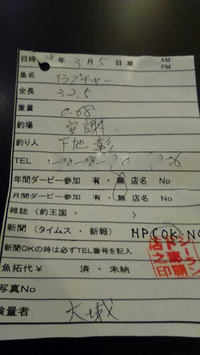 日時 28年 3月 5日 潮 AM PM
魚名
全長 32.5
重量 0.68
釣場 安謝
釣り人 下地 彰
TEL
年間ダービー参加 有・無 店名 No
月間ダービー参加 有・無 店名 No
雑誌（釣王国・ ）
新聞（タイムス・新報） HP OK・NO
新聞OKの時は必ずTEL番号を記入
魚拓代￥ 済・未納
写真No
検量者 大城